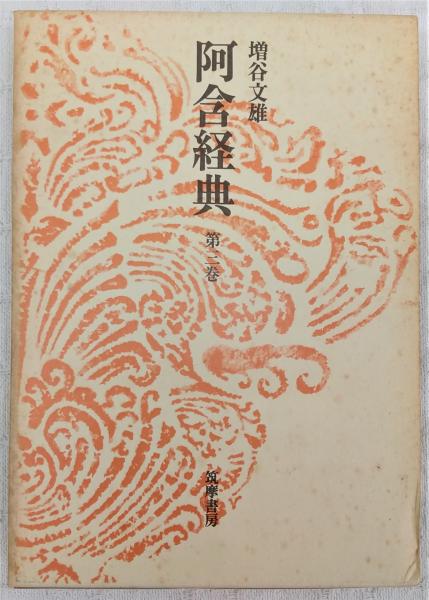 増谷文雄
阿含経典
第二巻
筑摩書房